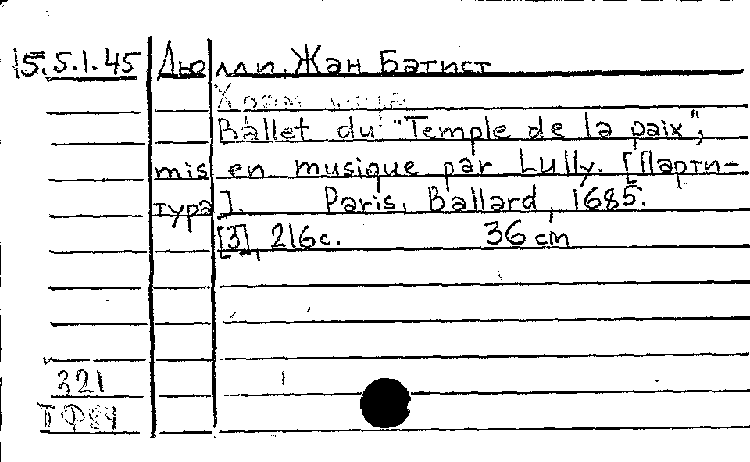 15.5.1.45 Люлли, Жан Батист
Ballet du "Temple de la paix",
mis en musique par Lully. [Парти-
тура]. Paris, Ballard, 1685.
[3], 216с. 36 cm
321